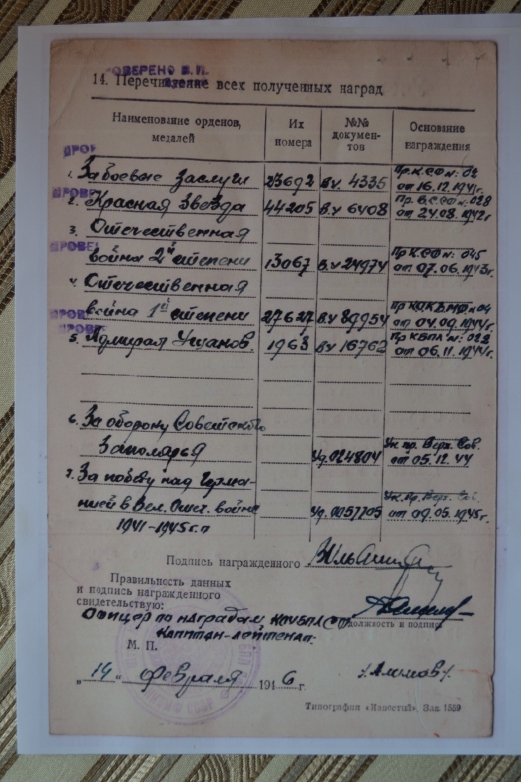 ПРОВЕРЕНО В.П.
14. Перечисление всех полученных наград
Наименование орденов, медалей Их номера №№ документов Основание награждения
1. За боевые заслуги 23692 В.У. 4335 Пр. К.СФ №: 02 от 16.12.1941г.
2. Красная Звезда 44205 В.У 6408 Пр. В.СФ №: 028 от 24.08.1942г
3. Отечественная
война 2й степени 13067 В.У 24974 Пр К.СФ №: 045 от 07.06.1943г.
4. Отечественная
война 1й степени 27627 В.У 89954 от 04.09.1944г.
5. Адмирал Ушаков. 1963 В.У 16762 Пр КБПЛ №: 028 от 06.11.1944г.
6. За оборону Советского
Заполярья Уд. 024804 Ук. пр. Верх. Сов. от 05.12.44
7. За победу над Герма-
нией в Вел. Отеч. войне Уд. 0057705 Ук. пр. Верх. Сов. от 09.05.1945г.
1941-1945г.г
Подпись награжденного
Правильность данных
и подпись награжденного
свидетельствую:
Офицер по наградам
должность и подпись
Капитан-лейтенант
М. П.
„ 14 „ Февраля 1946 г
Типография «Известий». Зак 1559